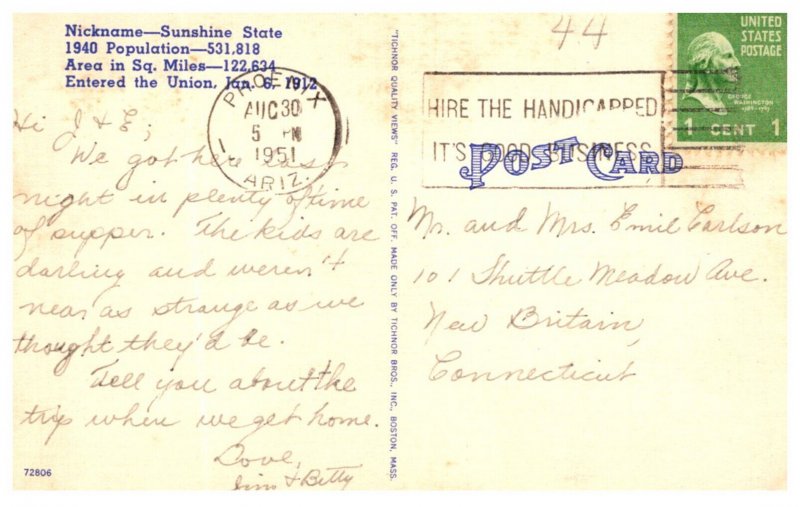 Nickname—Sunshine State
1940 Population—531,818
Area in Sq. Miles—122,634
Entered the Union, Jan. 6, 1912
Hi J & E;
We got here last
night in plenty of time
of supper. The kids are
darling and weren't
near as strange as we
thought they'd be.
Tell you about the
trip when we get home.
Love,
Jim & Betty
72806
"TICHNOR QUALITY VIEWS" REG. U. S. PAT. OFF. MADE ONLY BY TICHNOR BROS., INC., BOSTON, MASS.
PHOENIX
AUG 30
5 PM
1951
ARIZ.
44
HIRE THE HANDICAPPED
IT'S GOOD BUSINESS
POST CARD
UNITED
STATES
POSTAGE
GEORGE
WASHINGTON
1 CENT 1
Mr. and Mrs. Emil Carlson
101 Shuttle Meadow Ave.
New Britain,
Connecticut